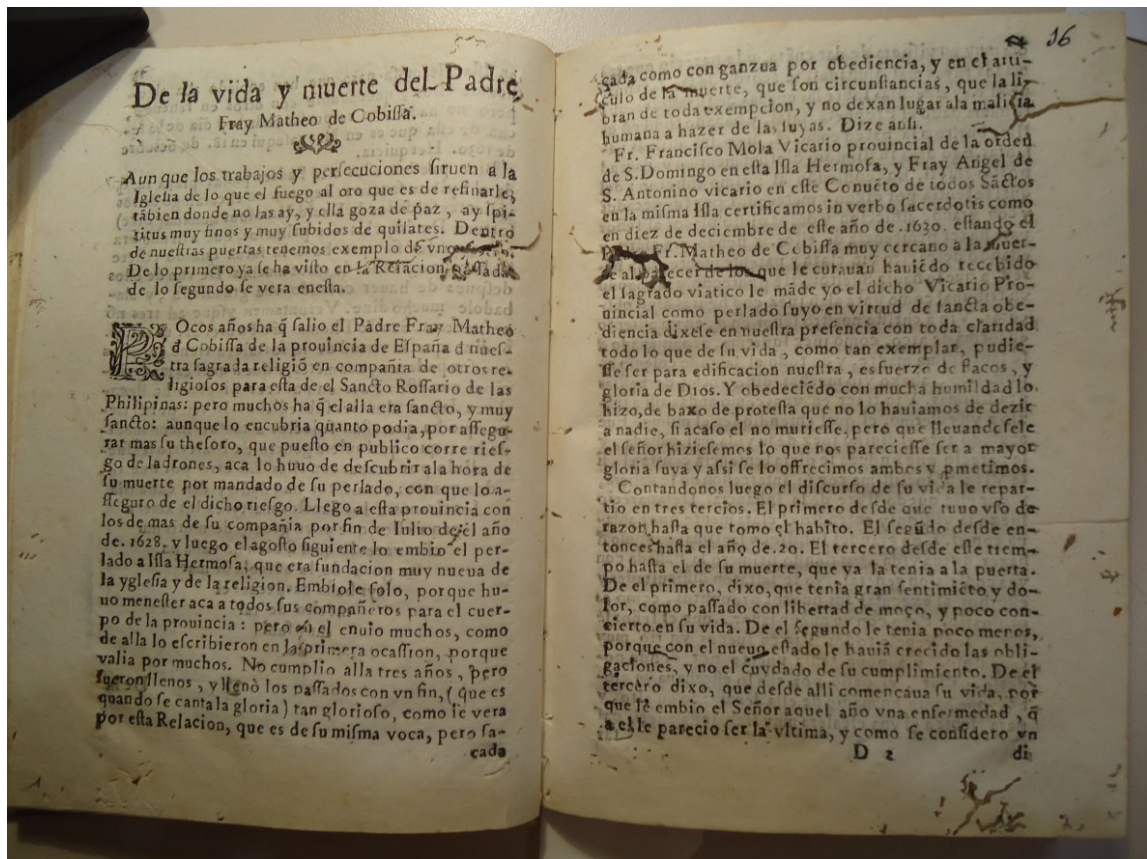 De la vida y muerte del Padre
Fray Matheo de Cobiſſa.
Aun que los trabajos y perſecuciones ſiruen a la
Igleſia de lo que el fuego al oro que es de refinarle,
tãbien donde no las ay, y ella goza de paz, ay ſpi-
ritus muy finos y muy ſubidos de quilates. Dentro
de nueſtras puertas tenemos exemplo de vno
De lo primero ya ſe ha viſto en la Relacion paſſada
de lo ſegundo ſe vera eneſta.
POcos años ha q̃ ſalio el Padre Fray Matheo
d Cobiſſa de la prouincia de Eſpaña d nueſ-
tra ſagrada religiõ en compañia de otros re-
ligioſos para eſta de el Sancto Roſſario de las
Philipinas: pero muchos ha q̃ el alla era ſancto, y muy
ſancto: aunque lo encubria quanto podia, por aſſegu-
rar mas ſu theſoro, que pueſto en publico corre rieſ-
go de ladrones, aca lo huuo de deſcubrir ala hora de
ſu muerte por mandado de ſu perlado, con que lo a-
ſſeguro de el dicho rieſgo. Llego a eſta prouincia con
los de mas de ſu compañia por fin de Iulio de el año
de. 1628. y luego el agoſto ſiguiente lo embio el per-
lado a Iſla Hermoſa, que era fundacion muy nueua de
la ygleſia y de la religion. Embiole ſolo, porque hu-
uo meneſter aca a todos ſus compañeros para el cuer-
po de la prouincia: pero en el enuio muchos, como
de alla lo eſcribieron en la primera ocaſſion, porque
valia por muchos. No cumplio alla tres años, pero
fueron llenos, y llenò los paſſados con vn fin, (que es
quando ſe canta la gloria) tan glorioſo, como ſe vera
por eſta Relacion, que es de ſu miſma voca, pero ſa-
cada
16
cada como con ganzua por obediencia, y en el arti-
culo de la muerte, que ſon circunſtancias, que la li-
bran de toda exempcion, y no dexan lugar ala malicia
humana a hazer de las ſuyas. Dize anſi.
Fr. Franciſco Mola Vicario prouincial de la orden
de S. Domingo en eſta Iſla Hermoſa, y Fray Angel de
S. Antonino vicario en eſte Conuẽto de todos Sãctos
en la miſma Iſla certificamos in verbo ſacerdotis como
en diez de deciembre de eſte año de .1630. eſtando el
Padre Fr. Matheo de Cobiſſa muy cercano a la muer-
te al parecer de los que le curauan hauiẽdo recebido
el ſagrado viatico le mãde yo el dicho Vicario Pro-
uincial como perlado ſuyo en virtud de ſancta obe-
diencia dixeſe en nueſtra preſencia con toda claridad
todo lo que de ſu vida, como tan exemplar, pudie-
ſſe ſer para edificacion nueſtra, esfuerzo de flacos, y
gloria de Dios. Y obedeciẽdo con mucha humildad lo
hizo, de baxo de proteſta que no lo hauiamos de dezir
a nadie, ſi acaſo el no murieſſe, pero que lleuandeſele
el ſeñor hizieſemos lo que nos parecieſſe ſer a mayor
gloria ſuya y aſſi ſe lo offrecimos ambos y pmetimos.
Contandonos luego el diſcurſo de ſu vida le repar-
tio en tres tercios. El primero deſde que tuuo vſo de
razon haſta que tomo el habito. El ſegũdo deſde en-
tonces haſta el año de. 20. El tercero deſde eſte tiem-
po haſta el de ſu muerte, que ya la tenia a la puerta.
De el primero, dixo, que tenia gran ſentimiẽto y do-
lor, como paſſado con libertad de moço, y poco con-
cierto en ſu vida. De el ſegundo le tenia poco menos,
porque con el nueuo eſtado le hauiã crecido las obli-
gaciones, y no el cuydado de ſu cumplimiento. De el
tercero dixo, que deſde alli comencaua ſu vida, por
que le embio el Señor aquel año vna enfermedad, q̃
a el le parecio ſer la vltima, y como ſe conſidero vn
D 2 di